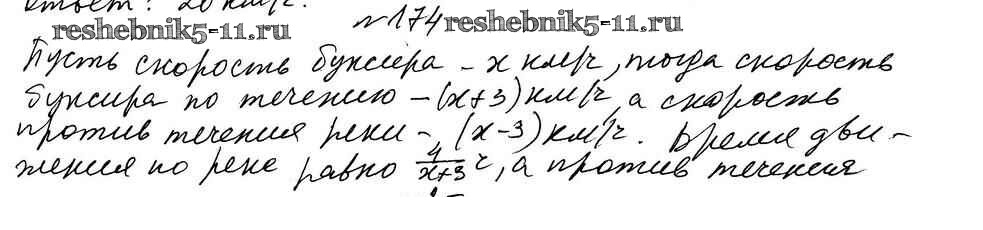 ответ: 20 км/ч.
№174
reshebnik5-11.ru reshebnik5-11.ru
Пусть скорость буксира - x км/ч, тогда скорость
буксира по течению - (x+3) км/ч, а скорость
против течения реки - (x-3) км/ч. Время дви-
жения по реке равно 4/(x+3) ч, а против течения